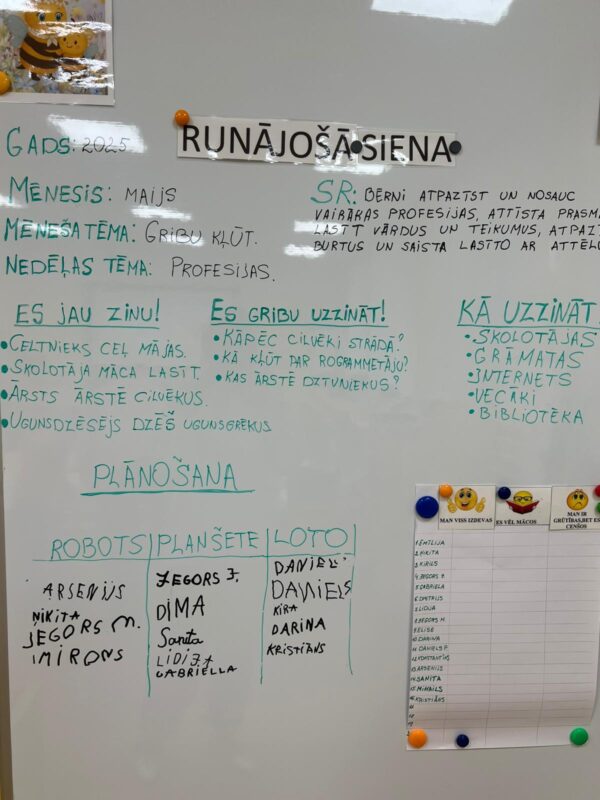 RUNĀJOŠĀ SIENA
GADS: 2025
MĒNESIS: MAIJS
MĒNEŠA TĒMA: GRIBU KĻŪT.
NEDĒĻAS TĒMA: PROFESIJAS.
SR: BĒRNI ATPAZĪST UN NOSAUC
VAIRĀKAS PROFESIJAS, ATTĪSTA PRASM
LASĪT VĀRDUS UN TEIKUMUS, ATPAZ
BURTUS UN SAISTA LASĪTO AR ATTĒL
ES JAU ZINU!
•CELTNIEKS CEĻ MĀJAS.
•SKOLOTĀJA MĀCA LASĪT.
•ĀRSTS ĀRSTĒ CILVĒKUS.
•UGUNSDZĒSĒJS DZĒŠ UGUNSGRĒKUS
ES GRIBU UZZINĀT!
•KĀPĒC CILVĒKI STRĀDĀ?
•KĀ KĻŪT PAR ROGRAMMĒTĀJU?
•KAS ĀRSTĒ DZĪVNIEKUS?
KĀ UZZINĀT
•SKOLOTĀJAS
•GRĀMATAS
•INTERNETS
•VECĀKI
•BIBLIOTĒKA
PLĀNOŠANA
ROBOTS PLANŠETE LOTO
ARSENIJS
ŅIKITA
JEGORS M.
IMIRONS
JEGORS J.
DIMA
Sanita
LIDIJA
GABRIELLA
DANIEL
DANIELS
KIRA
DARINA
KRISTIĀNS
MAN VISS IZDEVAS
ES VĒL MĀCOS
MAN IR
GRŪTĪBAS,BET ES
CENŠOS
1.EMĪLIJA
2.ŅIKITA
3.KIRILS
4.JEGORS J.
5.GABRIELA
6.DMITRIJS
7.LIDIJA
8.JEGORS M.
9.ELISE
10.DARINA
11.DANIELS P.
12.KONSTANTĪNS
13.ARSENIJS
14.SANITA
15.MIHAILS
16.KRISTIĀNS
17
18
19